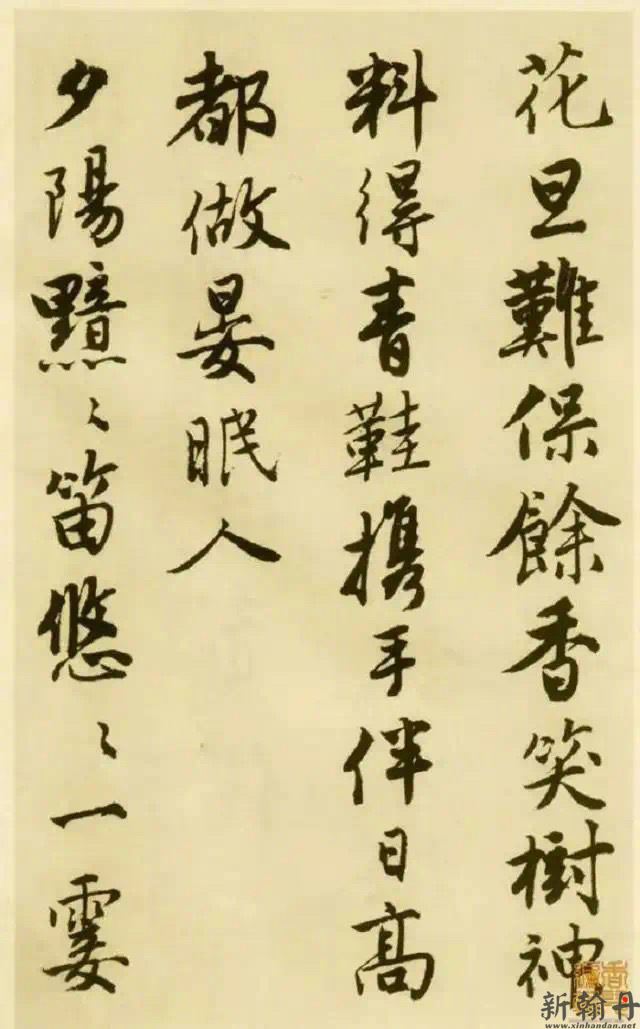 花旦難保餘香笑樹神
料得青鞋携手伴日高
都做晏眠人
夕陽黯〻笛悠〻一霎
新翰丹
www.xinhandan.net